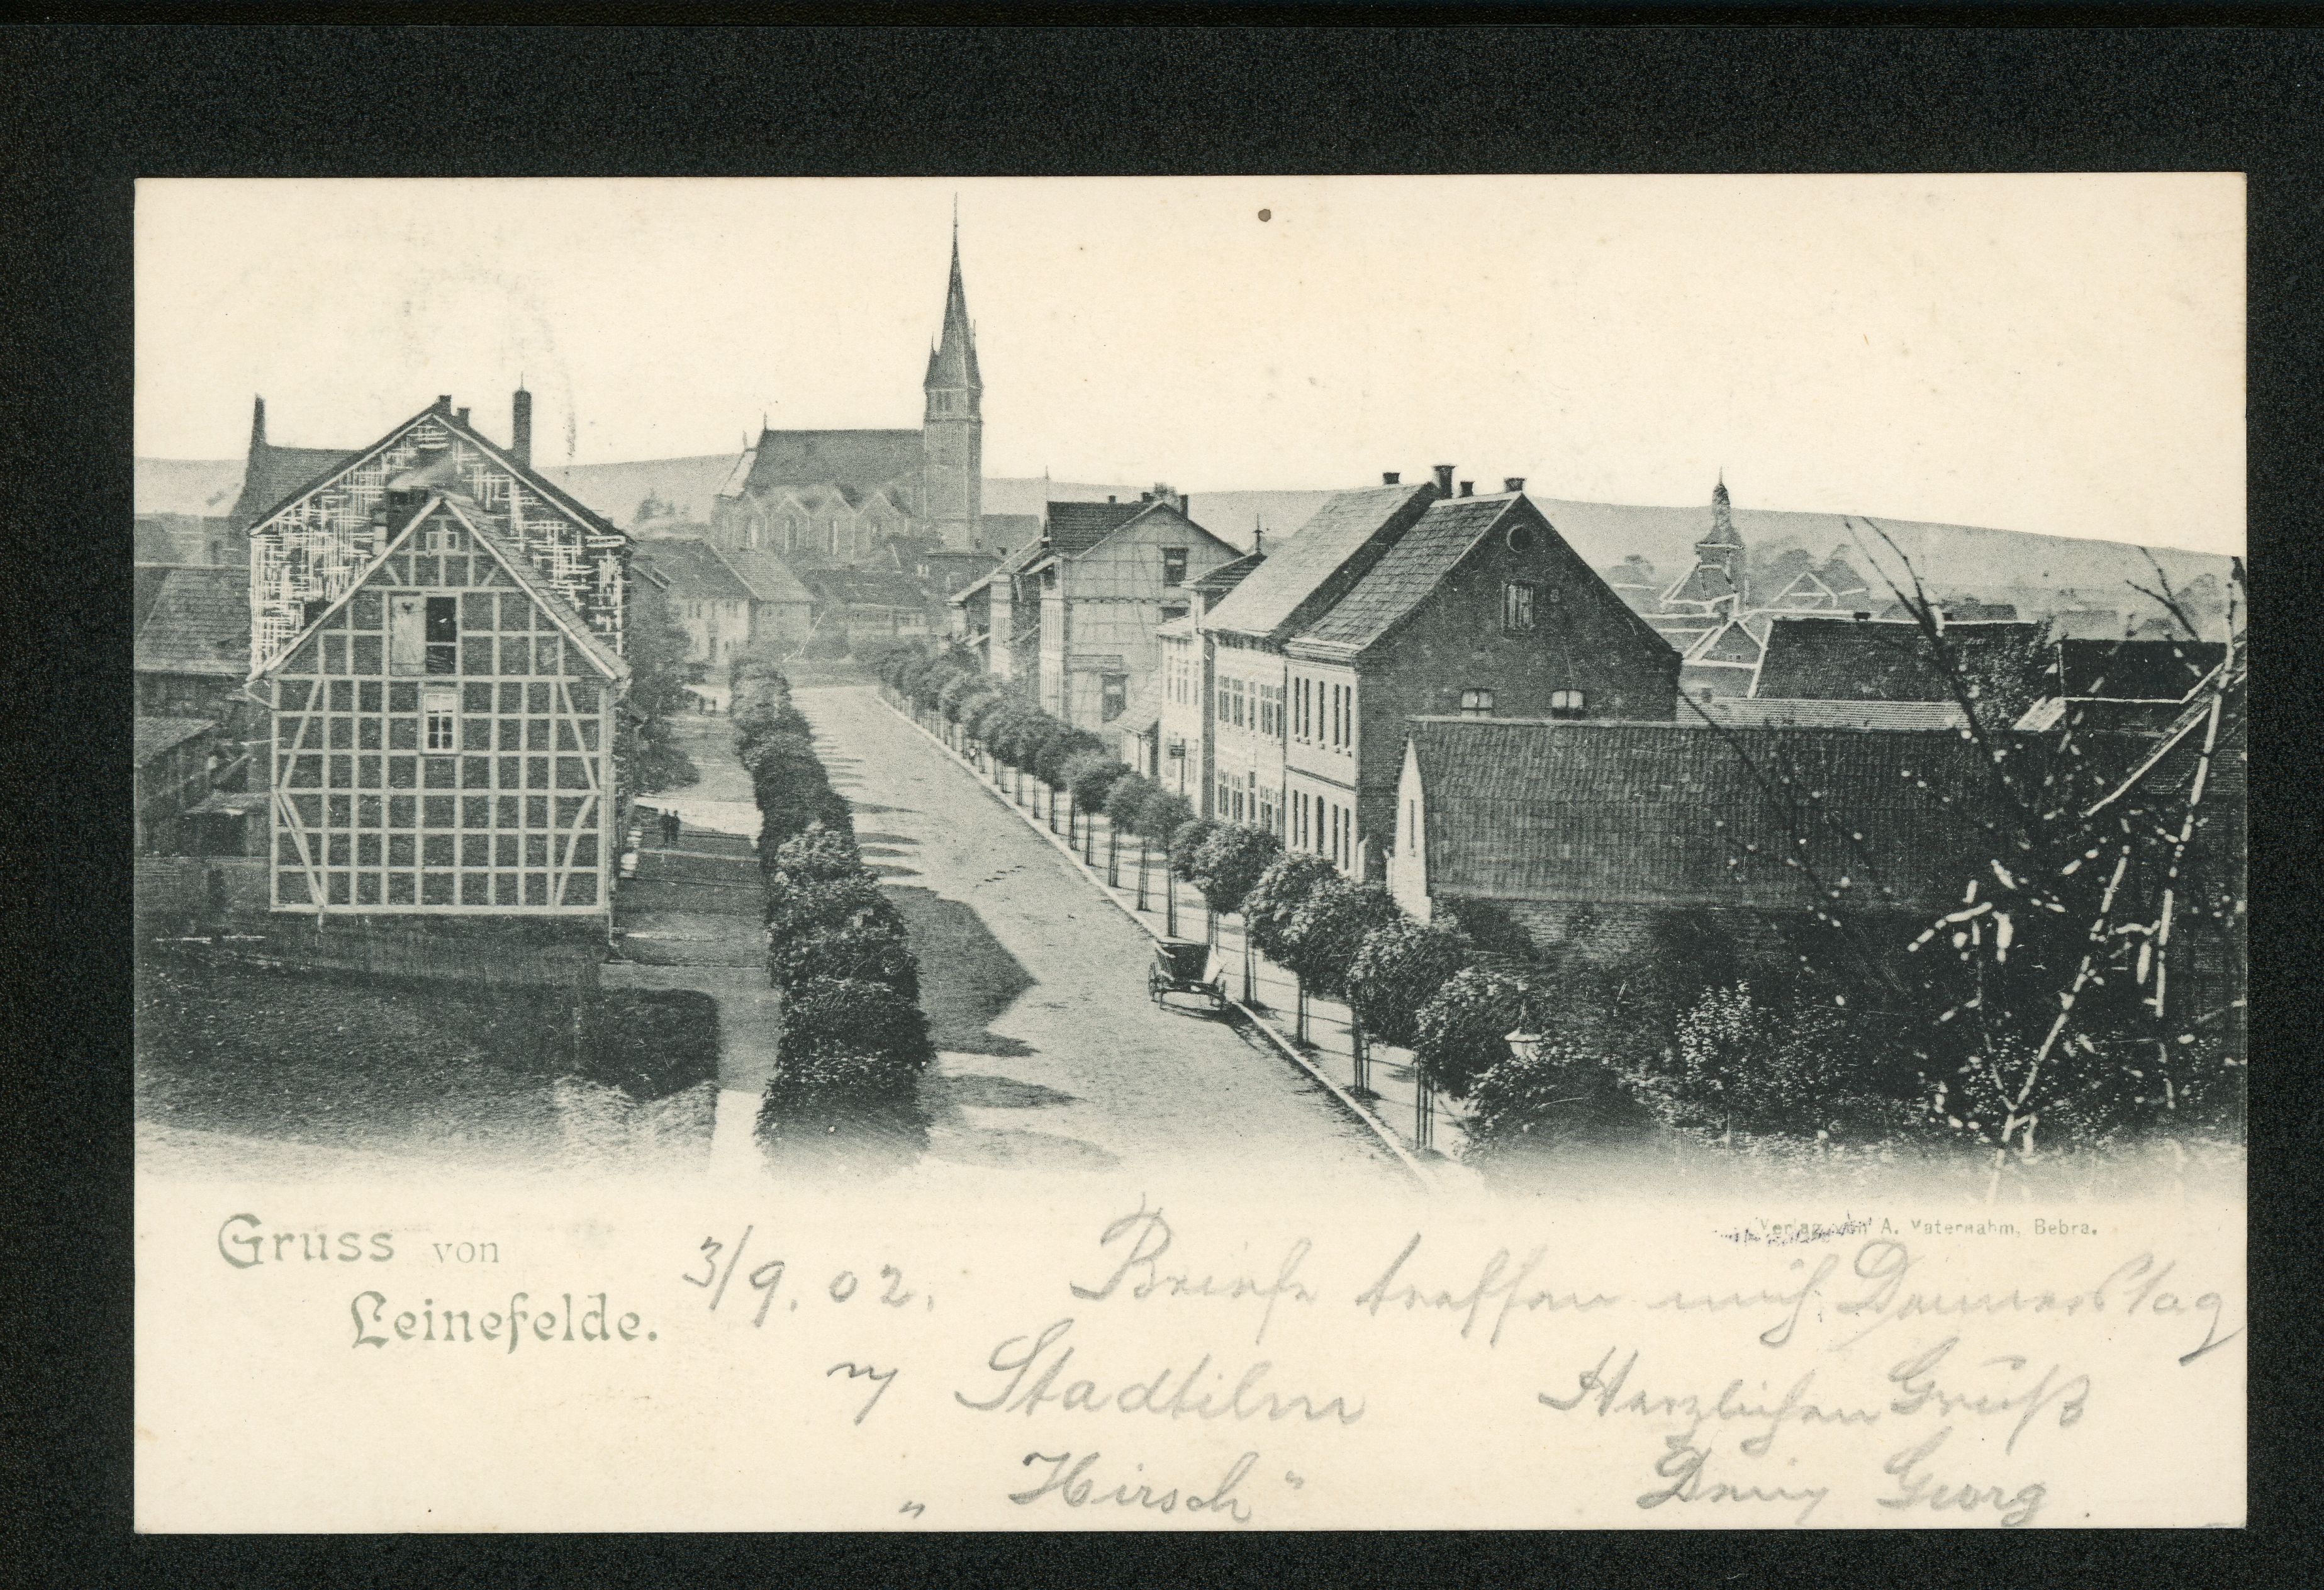 Gruss von
Leinefelde.
Verlag von A. Vaternahm, Bebra.
3/9. 02. Briefe treffen mich Donnerstag
in Stadtilm
„Hirsch"
Herzlichen Gruß
Dein Georg